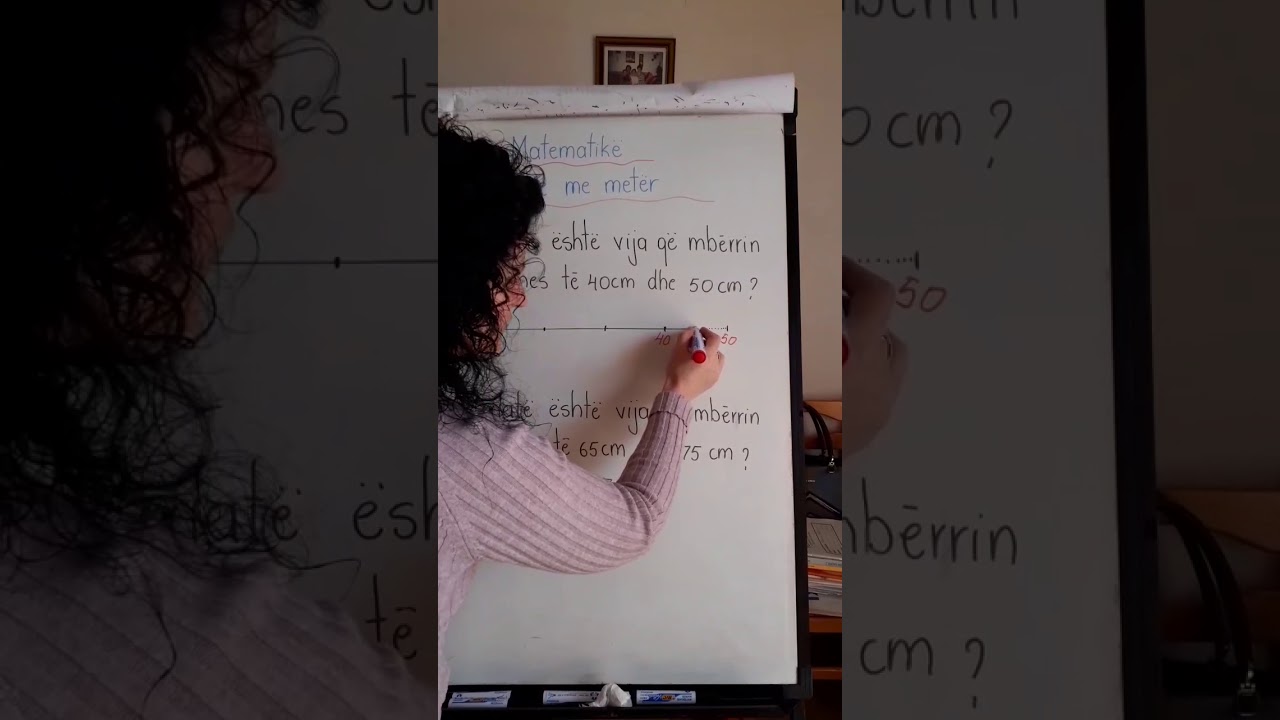 Matematikë
me metër
është vija që mbërrin
mes të 40cm dhe 50cm?
40 50
është vija mbërrin
të 65cm 75 cm?